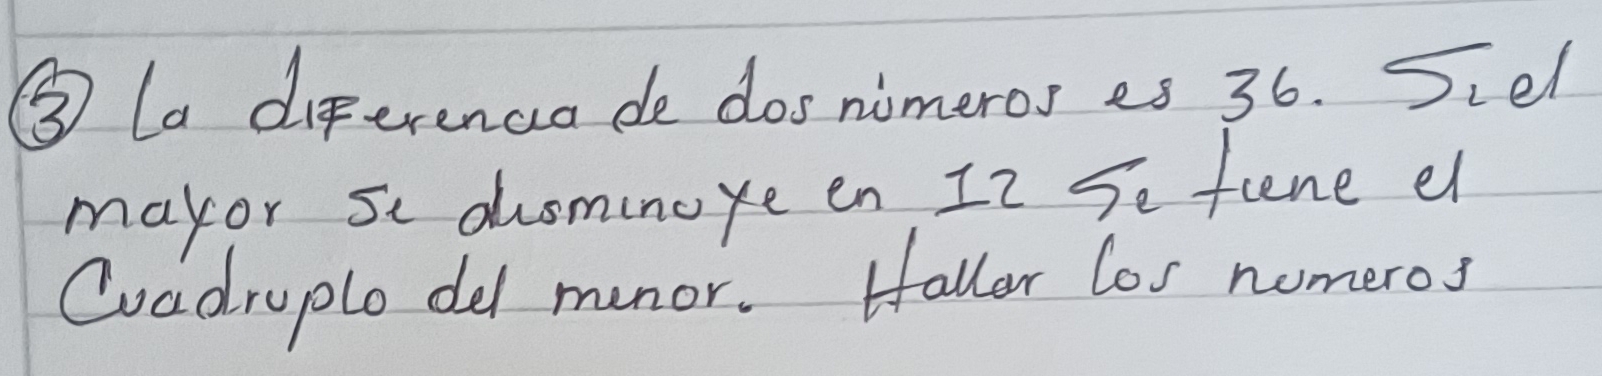 ③ La diferencia de dos números es 36. Si el
mayor se disminuye en 12 se tiene el
Cuadruplo del menor. Hallar los numeros